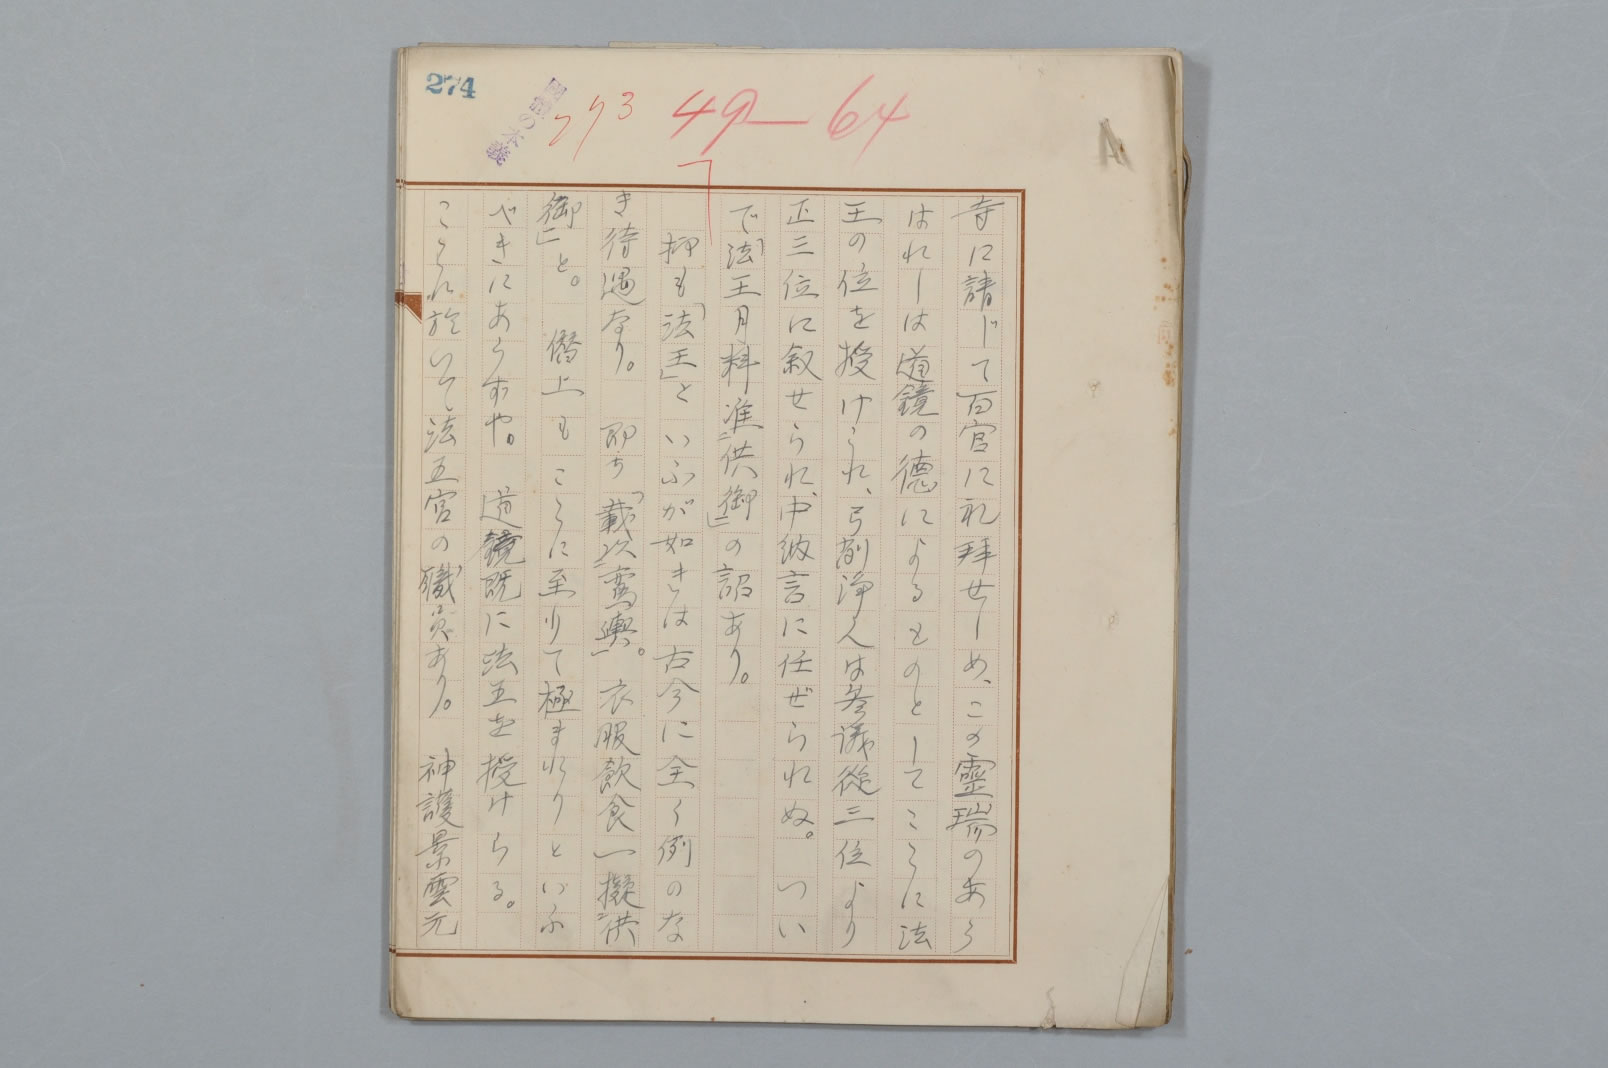 274
國體の本義
273
49—64
A
寺に請じて百官に礼拜せしめ、この靈瑞のあら
はれしは道鏡の德によるものとしてこゝに法
王の位を授けられ、弓削淨人は参議從三位より
正三位に叙せられ中納言に任ぜられぬ。つい
で「法王月料准供御」の詔あり。
抑も「法王」といふが如きは古今に全く例のな
き待遇なり。即ち「載以鸞輿。衣服飮食一擬供
御」と。僭上もこゝに至りて極まれりといふ
べきにあらずや。道鏡既に法王を授けらる。
こゝに於いて法王宮の職員あり。神護景雲元